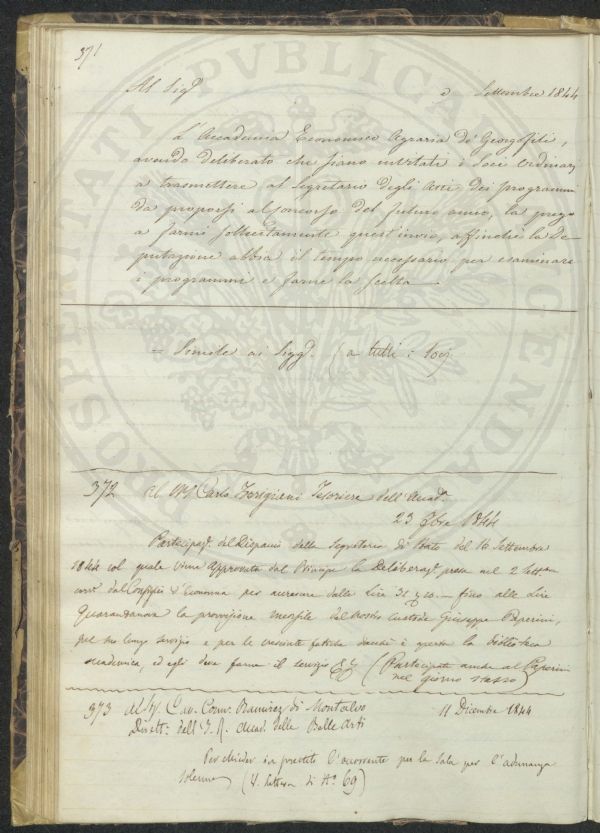 371
Al Sig.r
Settembre 1844
L'Accademia Economico Agraria de' Georgofili,
avendo deliberato che siano invitati i Soci Ordinarj
a trasmettere al Segretario degli Atti, dei programmi
da proporsi al concorso del futuro anno, la prego
a farmi sollecitamente quest'invio, affinchè la De-
putazione abbia il tempo necessario per esaminare
i programmi e farne la scelta.
= Simile ai Sigg.i (a tutti i Socj
372 Al Sig. Carlo Tesoriere dell'Accad.a
23 1844
Partecipaz.e del Dispaccio della Segreteria di Stato del 16 Settembre
1844 col quale viene approvata dal Principe la Deliberaz.e presa nel 2 Sett.e
dal Consiglio d'Economia per accrescere dalle Lire 31 fino alle Lire
Quarantanova la provvisione mensile del nostro Custode Giuseppe Paperini,
pel suo lungo servizio e per le cresciute fatiche dacchè è aperta la Biblioteca
accademica, ed egli deve farne il servizio (Partecipato anche al Paperini
nel giorno stesso)
373 Al Sig. Cav. Comm. Ramirez di Montalvo
11 Dicembre 1844
Dirett.e dell'I. R. Accad. delle Belle Arti
Per chieder in prestito l'occorrente per la Sala per l'adunanza
solenne (V. lettera di N.o 69)
PROSPERITATI PVBLICAE AVGENDAE